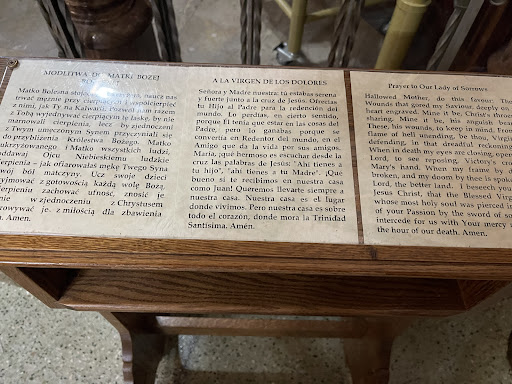 MODLITWA DO MATKI BOŻEJ
Matko Bolesna stojąca pod krzyżem, naucz nas
trwać mężnie przy cierpiących i współcierpieć
z nimi, jak Ty na Kalwarii. Pozwól nam razem
z Tobą wyjednywać cierpiącym tę łaskę, by nie
marnowali cierpienia, lecz by zjednoczeni
z Twym umęczonym Synem przyczyniali się
do przybliżenia Królestwa Bożego. Matko
Ukrzyżowanego i Matko wszystkich ludzi,
oddawaj Ojcu Niebieskiemu ludzkie
cierpienia – jak ofiarowałaś mękę Twego Syna
swój ból matczyny. Ucz swoje dzieci
przyjmować z gotowością każdą wolę Bożą,
cierpieniu zachować ufność, znosić je
w zjednoczeniu z Chrystusem
je z miłością dla zbawienia
Amen.
A LA VIRGEN DE LOS DOLORES
Señora y Madre nuestra: tú estabas serena
y fuerte junto a la cruz de Jesús. Ofrecías
tu Hijo al Padre para la redención del
mundo. Lo perdías, en cierto sentido,
porque Él tenía que estar en las cosas del
Padre, pero lo ganabas porque se
convertía en Redentor del mundo, en el
Amigo que da la vida por sus amigos.
María, ¡qué hermoso es escuchar desde la
cruz las palabras de Jesús: "Ahí tienes a
tu hijo", "ahí tienes a tu Madre". ¡Qué
bueno si te recibimos en nuestra casa
como Juan! Queremos llevarte siempre a
nuestra casa. Nuestra casa es el lugar
donde vivimos. Pero nuestra casa es sobre
todo el corazón, donde mora la Trinidad
Santísima. Amén.
Prayer to Our Lady of Sorrows
Hallowed Mother, do this favor: The
Wounds that gored my Saviour, deeply on
heart engraved. Mine it be, Christ's throes
sharing, Mine it be, his anguish bearing,
These, his wounds, to keep in mind. From
flame of hell unending, be thou, Virgin,
defending, in that dreadful reckoning
When in death my eyes are closing, open
Lord, to see reposing, Victory's crown
Mary's hand. When my frame by death
broken, and my doom by thee is spoken,
Lord, the better land. I beseech you,
Jesus Christ, that the Blessed Virgin
whose most holy soul was pierced in
of your Passion by the sword of sorrow
intercede for us with Your mercy
the hour of our death. Amen.